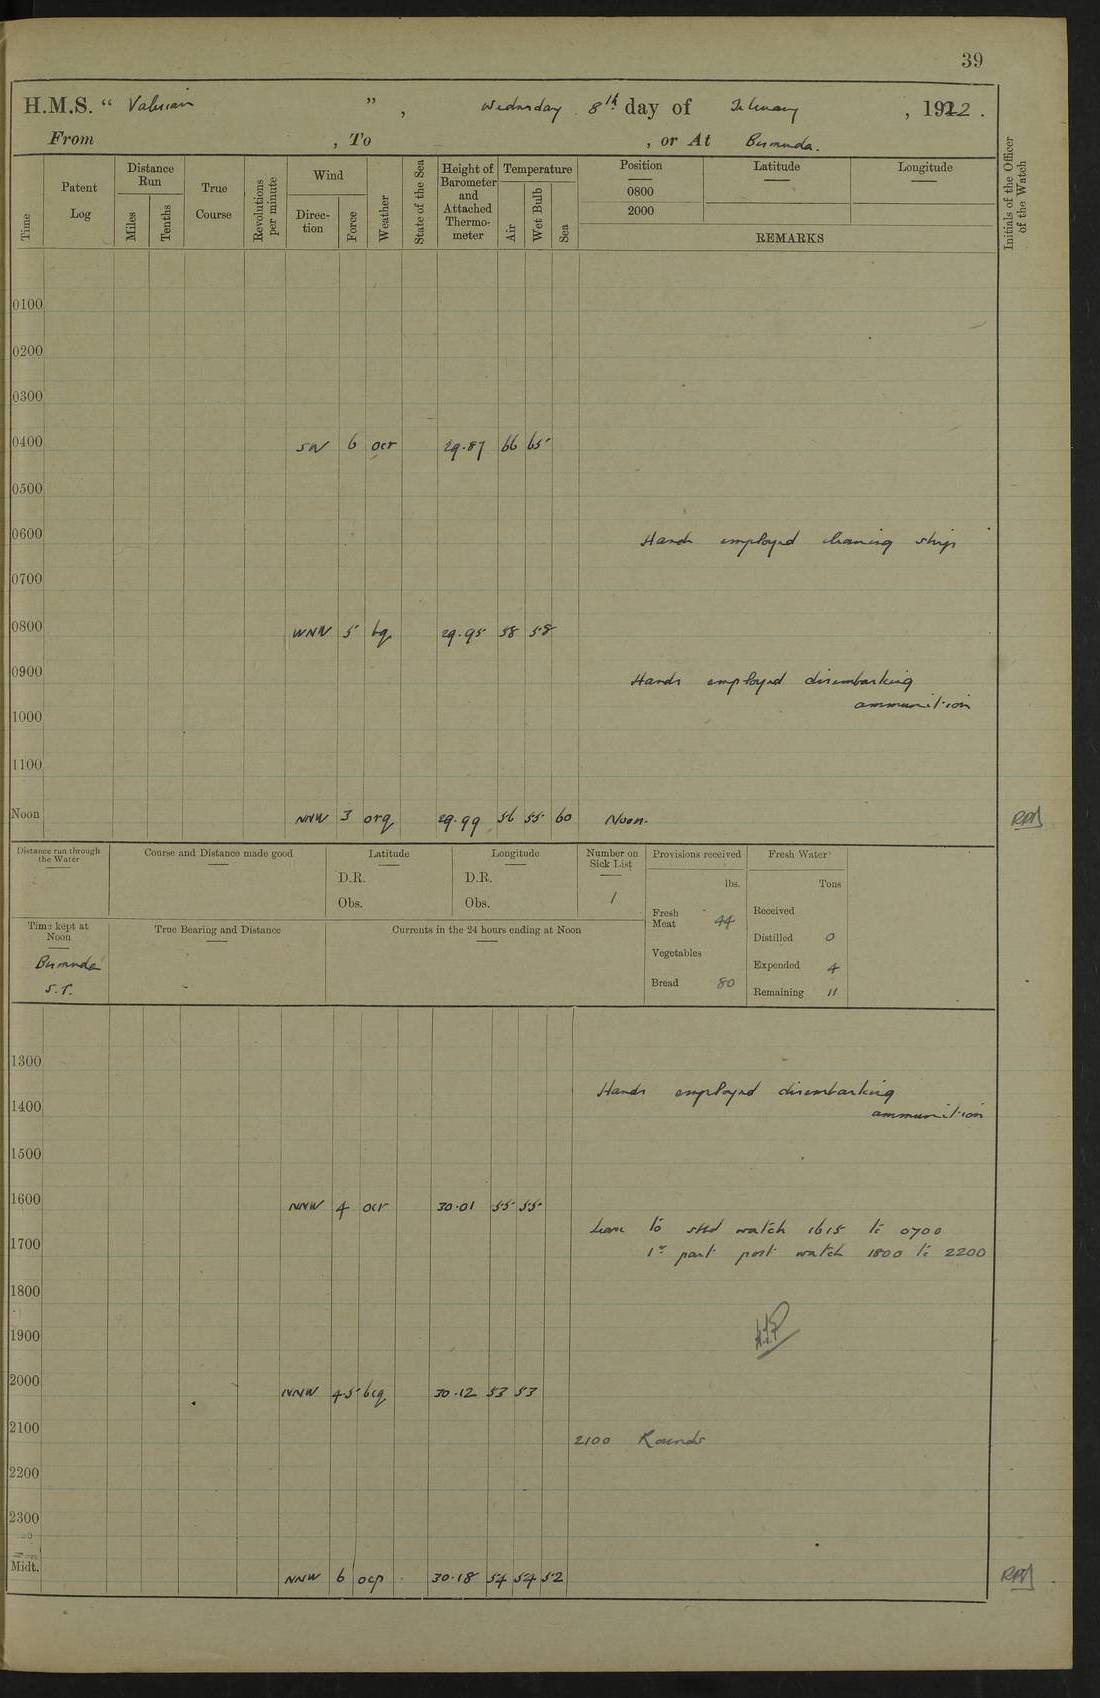 39
H.M.S. “ Valerian ” , Wednesday 8th day of February , 1922 .
From , To , or At Bermuda.
Time
Patent Log
Distance Run
Miles
Tenths
True Course
Revolutions per minute
Wind
Direc- tion
Force
Weather
State of the Sea
Height of Barometer and Attached Thermo- meter
Temperature
Air
Wet Bulb
Sea
Position
0800
2000
Latitude
Longitude
REMARKS
Initials of the Officer of the Watch
0100
0200
0300
0400 SW 6 ocr 29.87 66 65
0500
0600 Hands employed cleaning ship
0700
0800 WNW 5 bq 29.95 58 58
0900 Hands employed disembarking
ammunition
1000
1100
Noon NNW 3 orq 29.99 56 55 60 Noon.
Distance run through the Water
Course and Distance made good
Latitude
D.R.
Obs.
Longitude
D.R.
Obs.
Number on Sick List
1
Provisions received
lbs.
Fresh Meat 44
Vegetables
Bread 80
Fresh Water
Tons
Received
Distilled 0
Expended 4
Remaining 11
Time kept at Noon
Bermuda
S.T.
True Bearing and Distance
Currents in the 24 hours ending at Noon
1300
Hands employed disembarking
ammunition
1400
1500
1600 NNW 4 ocr 30.01 55 55
Leave to stbd watch 1615 to 0700
1700 1st part port watch 1800 to 2200
1800
1900
2000 NNW 4-5 bcq 30.12 53 53
2100
2100 Rounds
2200
2300
Midt. NNW 6 ocp 30.18 54 54 52